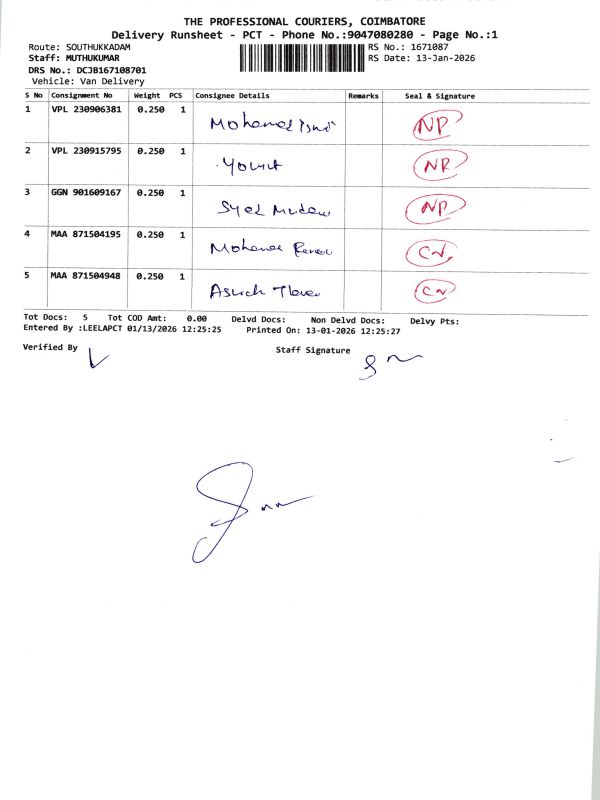 THE PROFESSIONAL COURIERS, COIMBATORE
Delivery Runsheet - PCT - Phone No.:9047080280 - Page No.:1
Route: SOUTHUKKADAM RS No.: 1671087
Staff: MUTHUKUMAR RS Date: 13-Jan-2026
DRS No.: DCJB167108701
Vehicle: Van Delivery
S No Consignment No Weight PCS Consignee Details Remarks Seal & Signature
1 VPL 230906381 0.250 1 Mohamed NP
2 VPL 230915795 0.250 1 NR
3 GGN 901609167 0.250 1 Syed NP
4 MAA 871504195 0.250 1 Mohamed CN
5 MAA 871504948 0.250 1 CN
Tot Docs: 5 Tot COD Amt: 0.00 Delvd Docs: Non Delvd Docs: Delvy Pts:
Entered By :LEELAPCT 01/13/2026 12:25:25 Printed On: 13-01-2026 12:25:27
Verified By Staff Signature